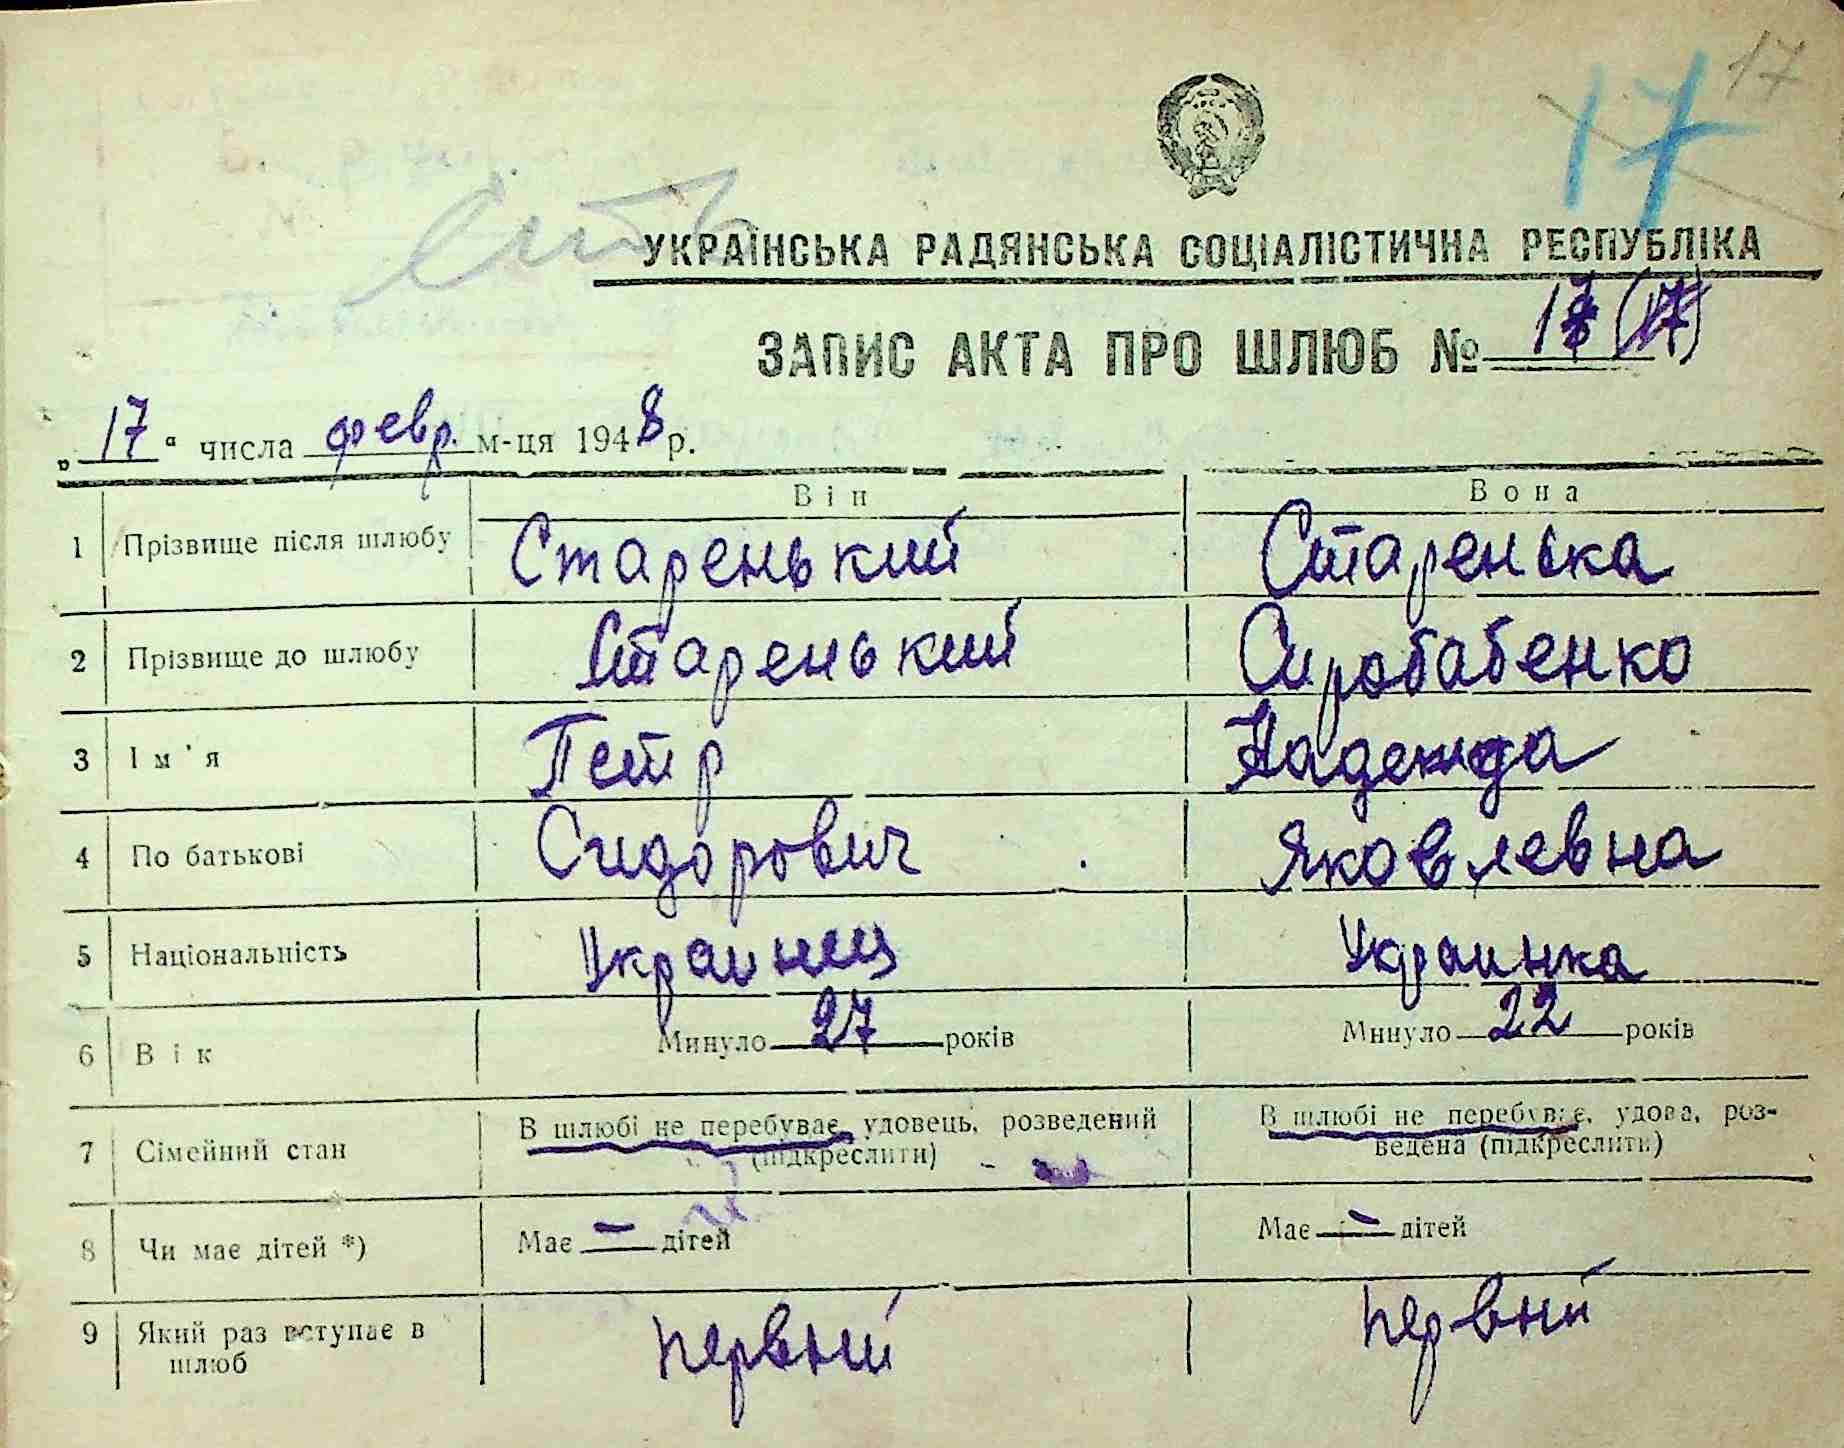 17
17
УКРАЇНСЬКА РАДЯНСЬКА СОЦІАЛІСТИЧНА РЕСПУБЛІКА
ЗАПИС АКТА ПРО ШЛЮБ № 17 (17)
„17“ числа февр. м-ця 1948 р.
Він Вона
1 Прізвище після шлюбу Старенький Старенька
2 Прізвище до шлюбу Старенький Сиробабенко
3 Ім'я Петр Надежда
4 По батькові Сидорович Яковлевна
5 Національність Украинец Украинка
6 Вік Минуло 27 років Минуло 22 років
7 Сімейний стан В шлюбі не перебуває, удовець, розведений (підкреслити) В шлюбі не перебуває, удова, роз-
ведена (підкреслити)
8 Чи має дітей *) Має — дітей Має — дітей
9 Який раз вступає в шлюб первый первый